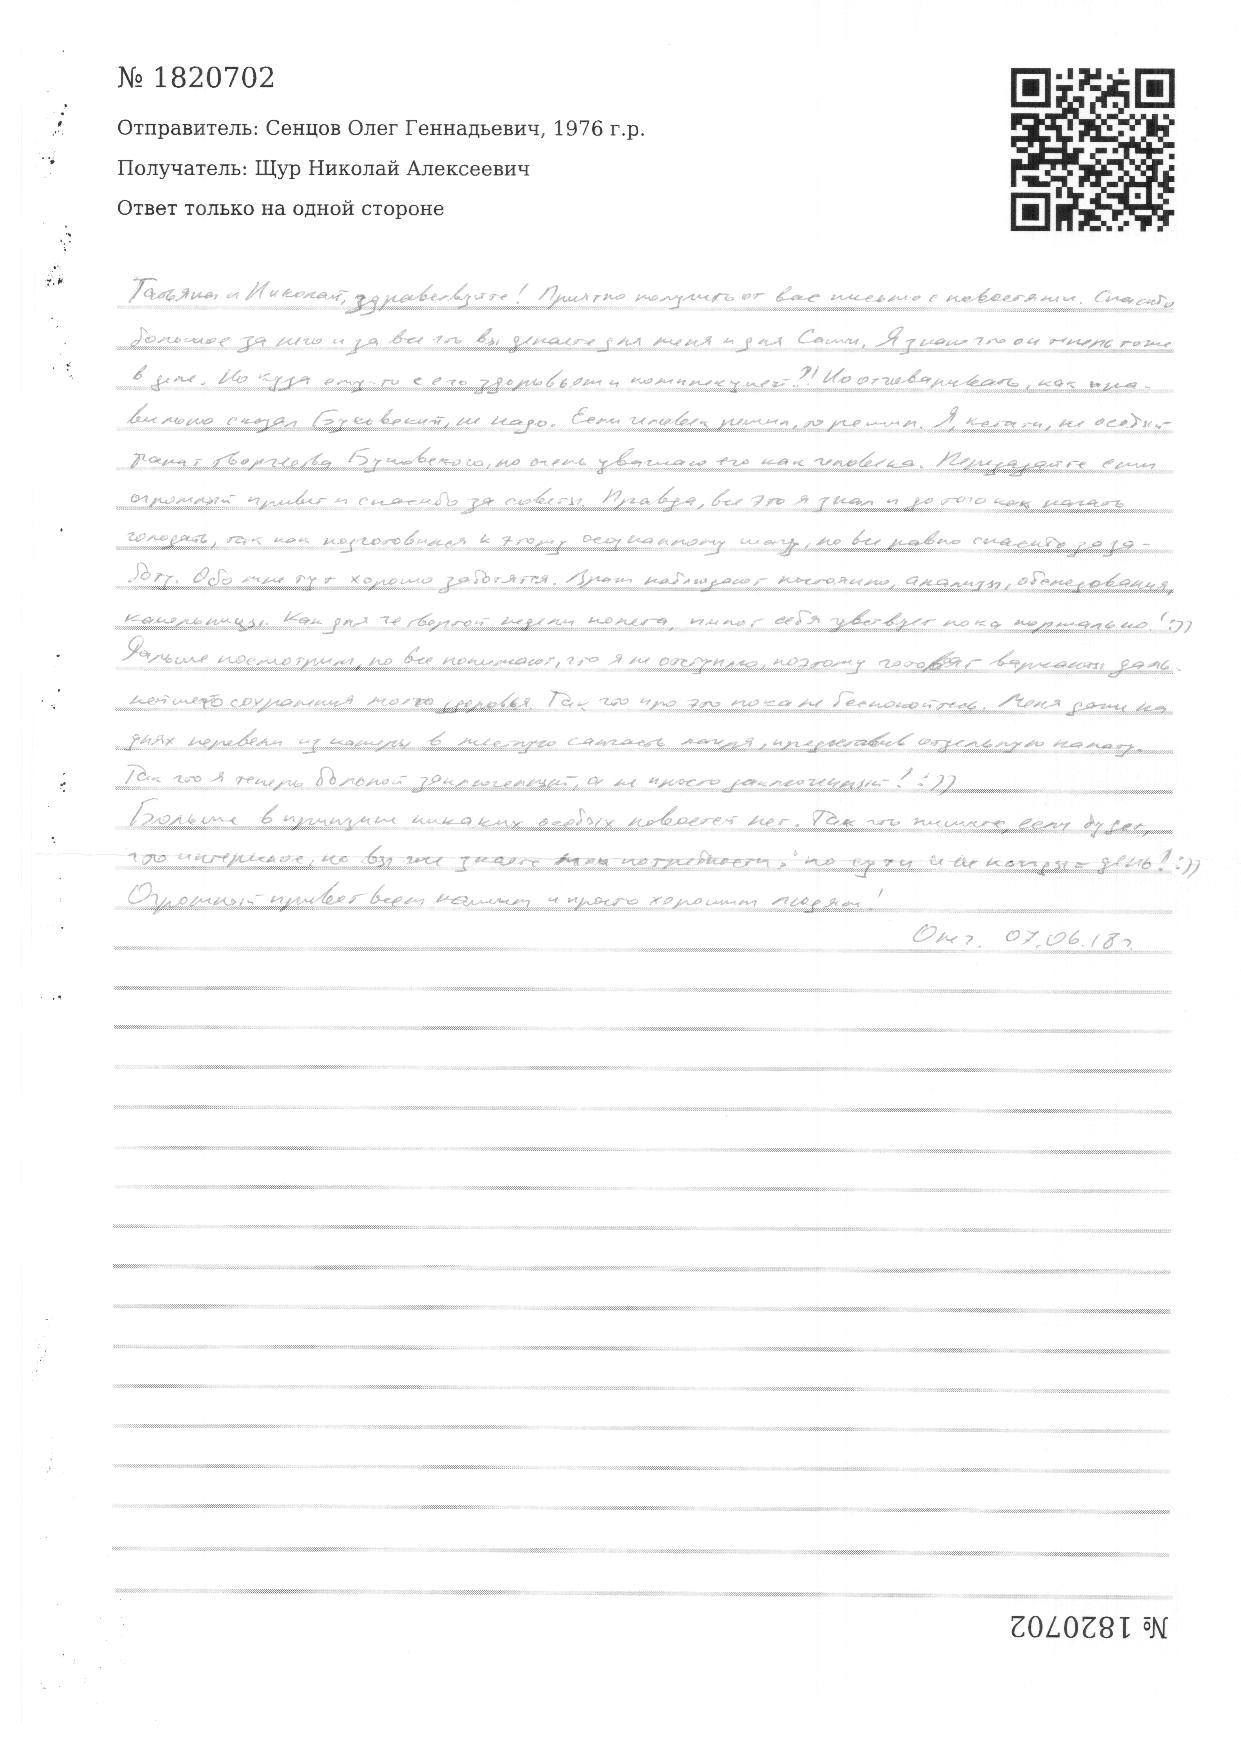 № 1820702
Отправитель: Сенцов Олег Геннадьевич, 1976 г.р.
Получатель: Щур Николай Алексеевич
Ответ только на одной стороне
Татьяна и Николай, здравствуйте! Приятно получить от вас письмо с новостями. Спасибо
большое за него и за все что вы делаете для меня и для Саши. Я знаю что он теперь тоже
в деле. Но куда ему-то с его здоровьем и комплекцией?! Но отговаривать, как пра-
вильно сказал Буковский, не надо. Если человек решил, то решил. Я, кстати, не особый
фанат творчества Буковского, но очень уважаю его как человека. Передайте ему
огромный привет и спасибо за советы. Правда, все это я знал и до того как начать
голодать, так как подготовился к этому осознанному шагу, но все равно спасибо за за-
боту. Обо мне тут хорошо заботятся. Врачи наблюдают постоянно, анализы, обследования,
капельницы. Как для четвертой недели полета, пилот себя чувствует пока нормально! :))
Дальше посмотрим, но все понимают, что я не отступлю, поэтому готовят варианты даль-
нейшего сохранения моего здоровья. Так что про это пока не беспокойтесь. Меня даже на
днях перевели из камеры в местную санчасть лагеря, предоставив отдельную палату.
Так что я теперь больной заключенный, а не просто заключенный! :))
Больше в принципе никаких особых новостей нет. Так что пишите, если будет,
что интересное, но вы уже знаете мои потребности: по сути и не каждый день! :))
Огромный привет всем нашим и просто хорошим людям!
Олег. 07.06.18г.
№ 1820702